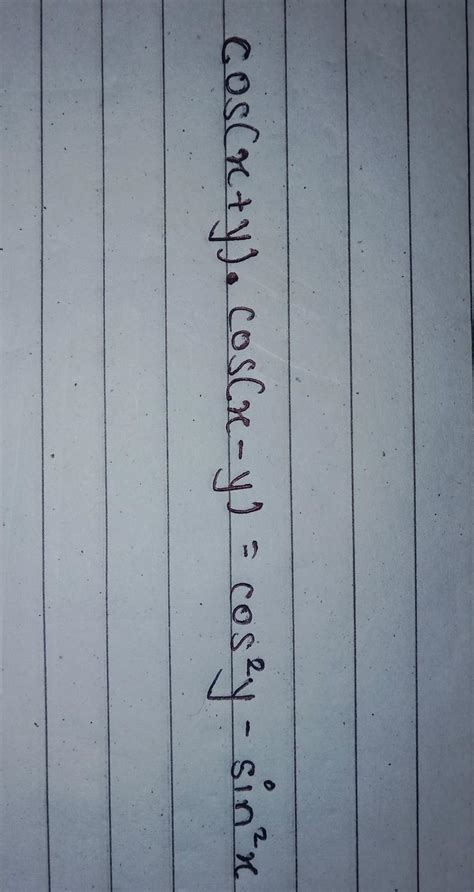 cos(x+y).cos(x-y) = cos²y - sin²x